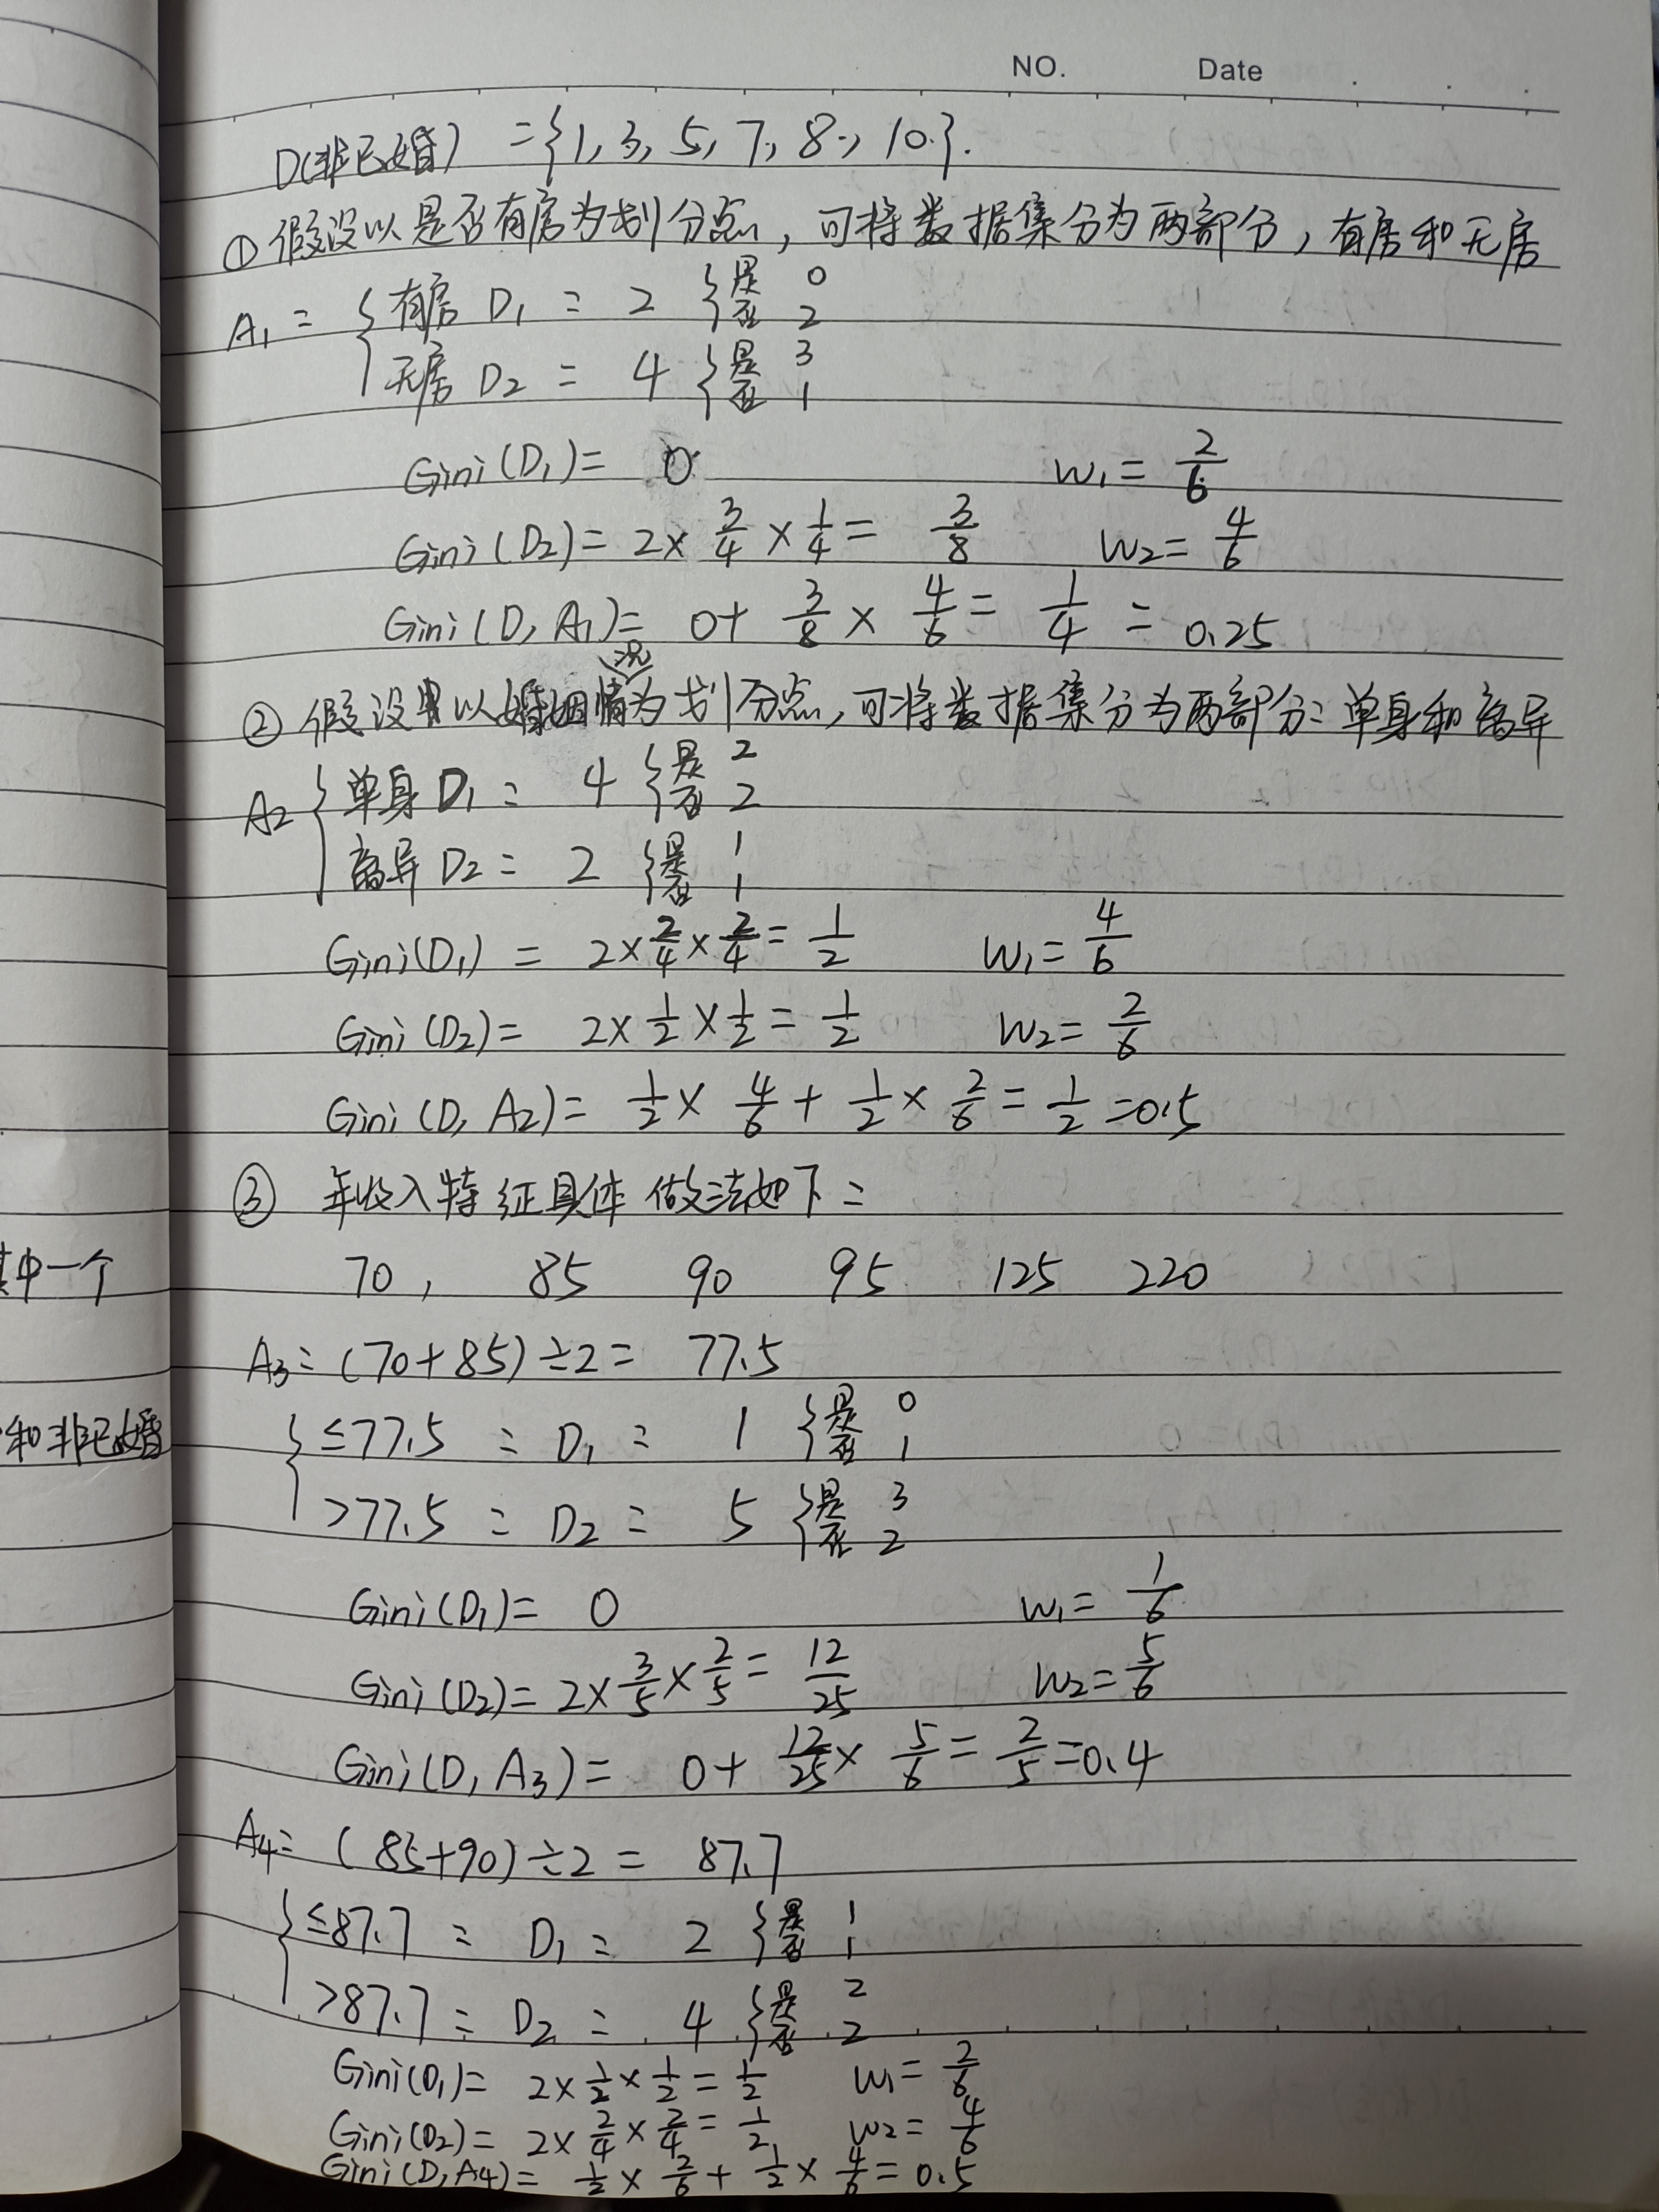 NO. Date
D(非已婚) ={1, 3, 5, 7, 8, 10}.
① 假设以是否有房为划分点, 可将数据集分为两部分, 有房和无房
A₁ = { 有房 D₁ = 2 { 是 0 否 2
无房 D₂ = 4 { 是 3 否 1
Gini(D₁)= 0 W₁= 2/6
Gini(D₂)= 2× 3/4 × 1/4 = 3/8 W₂= 4/6
Gini(D, A₁)= 0+ 3/8 × 4/6 = 1/4 = 0.25
② 假设以婚姻情况为划分点, 可将数据集分为两部分: 单身和离异
A₂ { 单身 D₁ = 4 { 是 2 否 2
离异 D₂ = 2 { 是 1 否 1
Gini(D₁) = 2× 2/4 × 2/4 = 1/2 W₁= 4/6
Gini(D₂)= 2× 1/2 × 1/2 = 1/2 W₂= 2/6
Gini(D, A₂)= 1/2 × 4/6 + 1/2 × 2/6 = 1/2 =0.5
③ 年收入特征具体做法如下:
其中一个
70, 85 90 95 125 220
A₃= (70+85)÷2= 77.5
和非已婚
{ ≤77.5 = D₁ = 1 { 是 0 否 1
>77.5 = D₂ = 5 { 是 3 否 2
Gini(D₁)= 0 W₁= 1/6
Gini(D₂)= 2× 3/5 × 2/5 = 12/25 W₂= 5/6
Gini(D, A₃)= 0+ 12/25 × 5/6 = 2/5 =0.4
A₄= (85+90)÷2 = 87.7
{ ≤87.7 = D₁ = 2 { 是 1 否 1
>87.7 = D₂ = 4 { 是 2 否 2
Gini(D₁)= 2× 1/2 × 1/2 = 1/2 W₁= 2/6
Gini(D₂)= 2× 2/4 × 2/4 = 1/2 W₂= 4/6
Gini(D, A₄)= 1/2 × 2/6 + 1/2 × 4/6 = 0.5